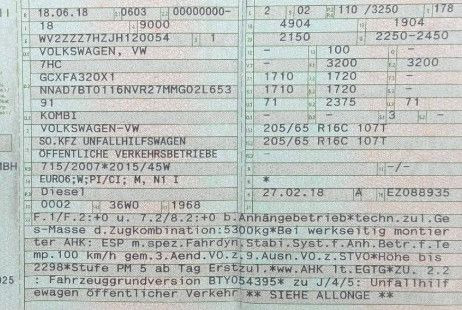 18.06.18 0603 00000000- 2 02 110 /3250 178
18 9000 4904 1904
WV2ZZZ7HZJH120054 1 2150 2250-2450
VOLKSWAGEN, VW - 100 -
7HC - 3200 3200
GCXFA320X1 1710 1720 -
NNAD7BT0116NVR27MMG02L653 1710 1720 -
91 71 2375 71
KOMBI - - 3 -
VOLKSWAGEN-VW 205/65 R16C 107T
SO.KFZ UNFALLHILFSWAGEN 205/65 R16C 107T
ÖFFENTLICHE VERKEHRSBETRIEBE -
MBH 715/2007*2015/45W -/-
EURO6;W;PI/CI; M, N1 I *
Diesel 27.02.18 A EZ088935
0002 36W0 1968
F.1/F.2:+0 u. 7.2/8.2:+0 b.Anhängebetrieb*techn.zul.Ge
s-Masse d.Zugkombination:5300kg*Bei werkseitig montier
ter AHK: ESP m.spez.Fahrdyn.Stabi.Syst.f.Anh.Betr.f.Te
mp.100 km/h gem.3.Aend.VO.z.9.Ausn.VO.z.STVO*Höhe bis
2298*Stufe PM 5 ab Tag Erstzul.*ww.AHK lt.EGTG*ZU. 2.2
025 : Fahrzeuggrundversion BTY054395* zu J/4/5: Unfallhilf
ewagen öffentlicher Verkehr ** SIEHE ALLONGE **